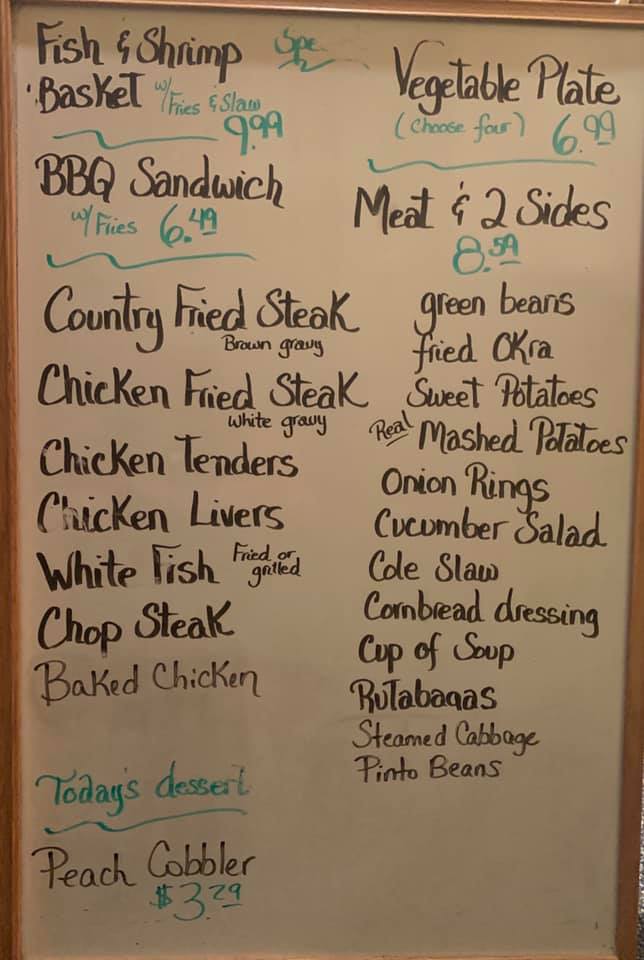 Fish & Shrimp
Basket w/ Fries & Slaw
9.99
BBQ Sandwich
w/ Fries 6.49
Country Fried Steak
Brown gravy
Chicken Fried Steak
White gravy
Chicken Tenders
Chicken Livers
White Fish Fried or
grilled
Chop Steak
Baked Chicken
Today's dessert
Peach Cobbler
$3.29
Vegetable Plate
(Choose four) 6.99
Meat & 2 Sides
8.59
green beans
fried Okra
Sweet Potatoes
Real Mashed Potatoes
Onion Rings
Cucumber Salad
Cole Slaw
Cornbread dressing
Cup of Soup
Rutabagas
Steamed Cabbage
Pinto Beans